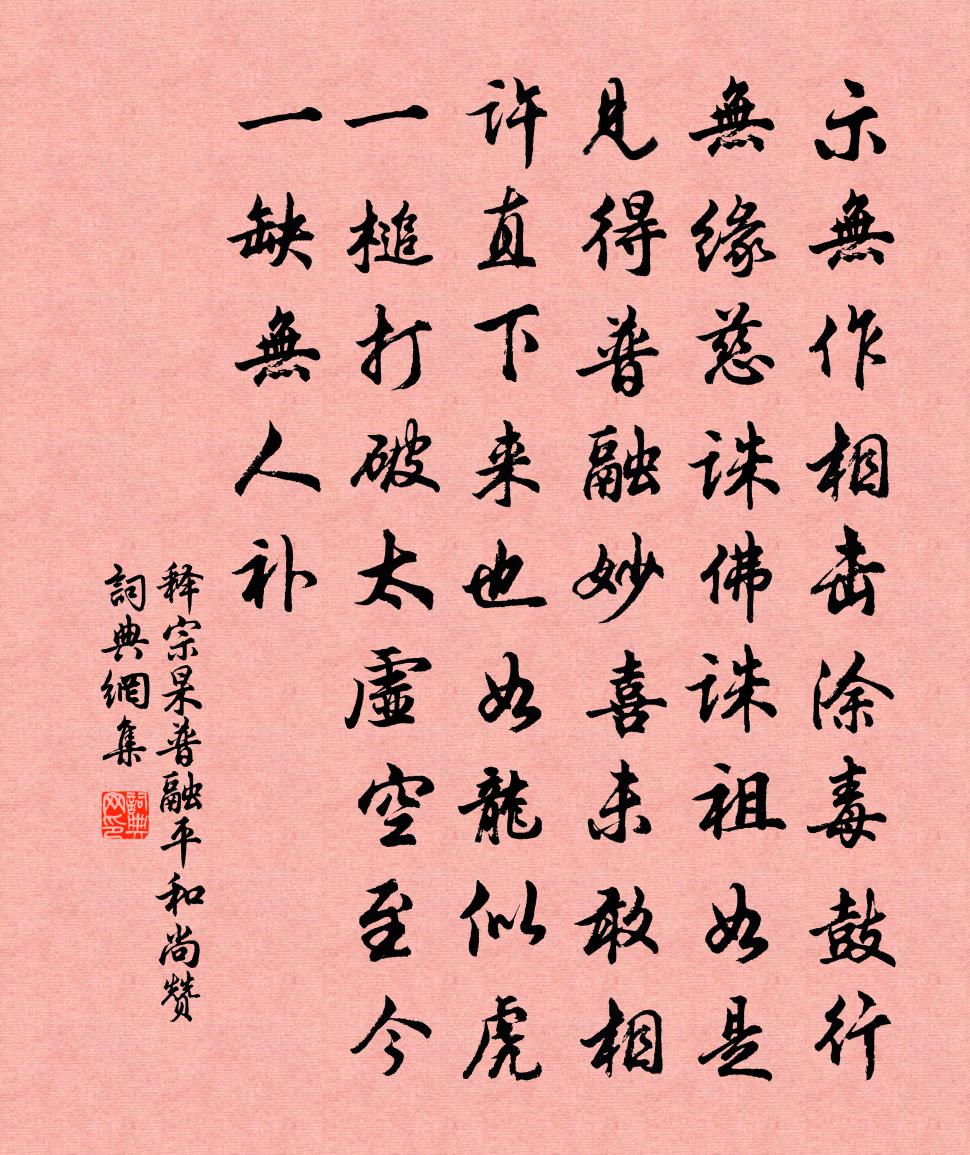 示無作相击涂毒鼓行
無緣慈誅佛誅祖如是
見得普融妙喜未敢相
許直下来也如龍似虎
一槌打破太虛空至今
一缺無人补
释宗杲普融平和尚赞
詞典網集
詞典网印